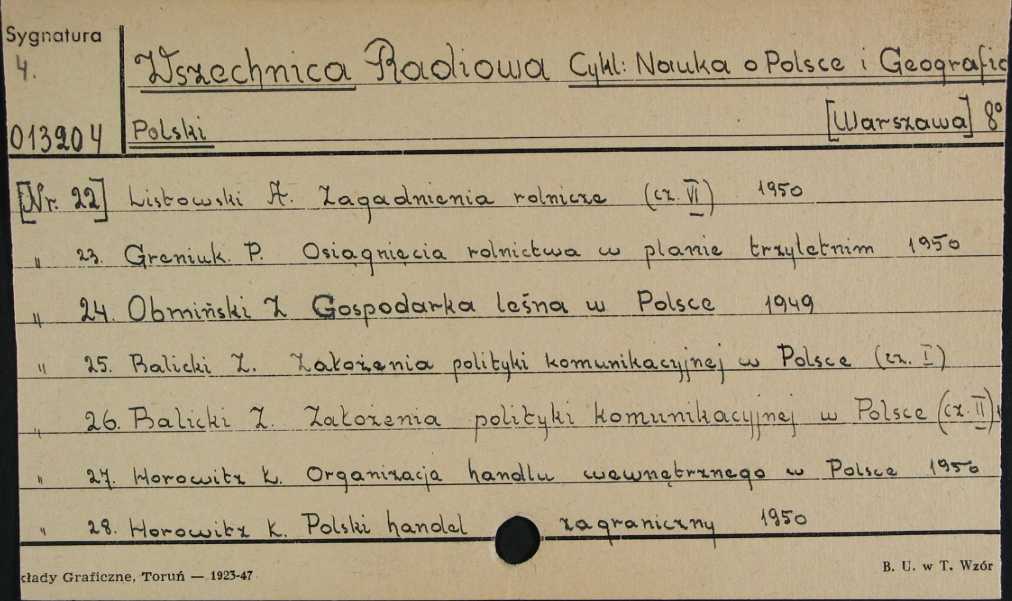 Sygnatura
4.
Wszechnica Radiowa Cykl: Nauka o Polsce i Geografic
013204 Polski [Warszawa] 8°
[Nr. 22] Listowski A. Zagadnienia rolnicze (cz. VI) 1950
„ 23. Greniuk. P. Osiągnięcia rolnictwa w planie trzyletnim 1950
„ 24. Obmiński Z Gospodarka leśna w Polsce 1949
„ 25. Balicki Z. Założenia polityki komunikacyjnej w Polsce (cz. I)
„ 26. Balicki Z. Założenia polityki komunikacyjnej w Polsce (cz. II)
„ 27. Horowitz K. Organizacja handlu wewnętrznego w Polsce 1950
„ 28. Horowitz K. Polski handel zagraniczny 1950
kłady Graficzne, Toruń — 1923-47
B. U. w T. Wzór